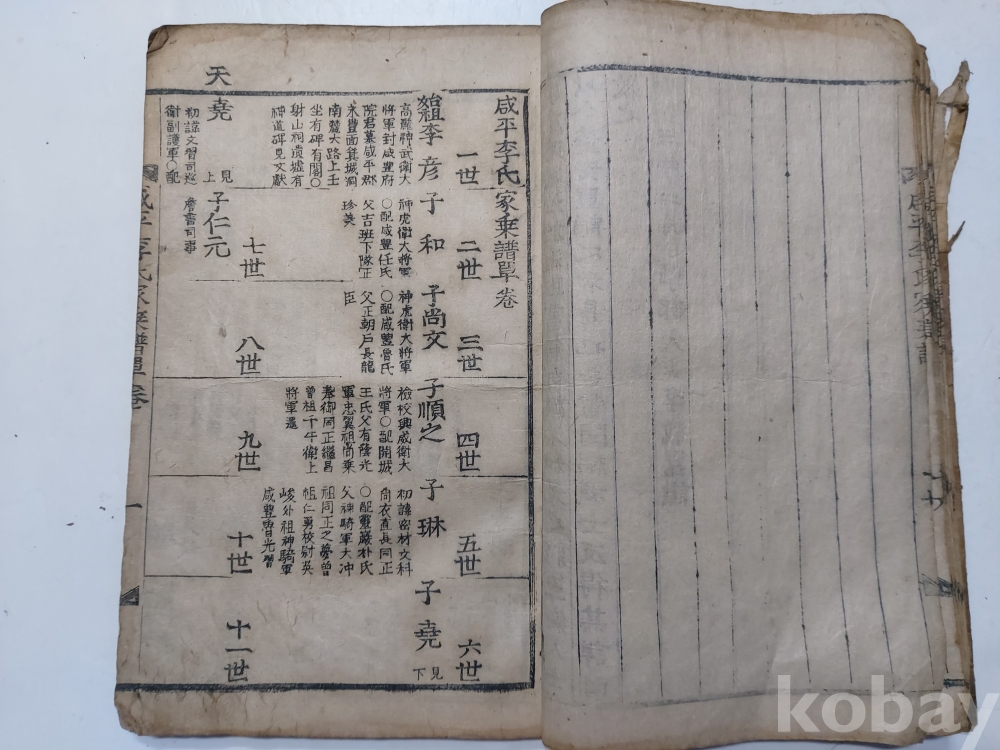 咸平李氏家乘譜單卷
一世
始祖李彦
高麗神武衛大
將軍封咸豊府
院君墓咸平郡
永豊面箕城洞
南麓大路上壬
坐有碑有閣○
射山祠遺墟有
神道碑見文獻
二世
子和
神虎衛大將軍
○配咸豊任氏
父吉班下隊正
珍美
三世
子尚文
神虎衛大將軍
○配咸豊魯氏
父正朝戶長龍
臣
四世
子順之
檢校興威衛大
將軍○配開城
王氏父有蔭光
軍忠翼祖尚乘
奉御同正繼昌
曾祖千牛衛上
將軍還
五世
子琳
初諱密材文科
尚衣直長同正
○配靈巖朴氏
父神騎軍大冲
祖同正之夢曾
祖仁勇校尉英
峻外祖神騎軍
咸豊魯光
六世
子堯
見下
天
堯
見上
初諱文習司巡
衛副護軍○配
七世
子仁元
司事
八世
九世
十世
十一世
咸平李氏家乘譜單卷
一
咸平李氏家乘譜
kobay